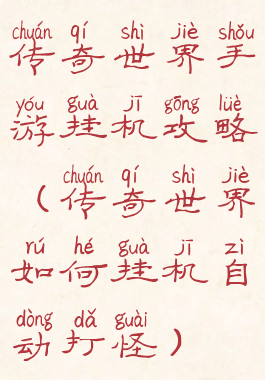 chuán qí shì jiè shǒu
传奇世界手
yóu guà jī gōng lüè
游挂机攻略
chuán qí shì jiè
（传奇世界
rú hé guà jī zì
如何挂机自
dòng dǎ guài
动打怪）